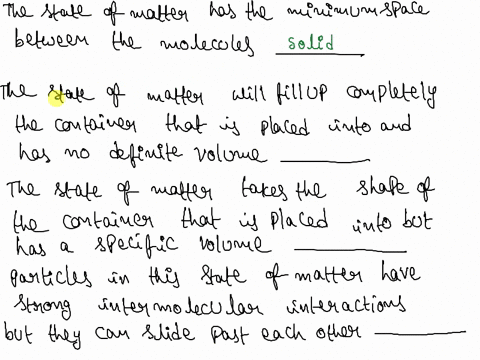 The state of matter has the minimum space
between the molecules solid
The state of matter will fill up completely
the container that is placed into and
has no definite volume
The state of matter takes the shape of
the container that is placed into but
has a specific volume
particles in this state of matter have
strong intermolecular interactions
but they can slide past each other